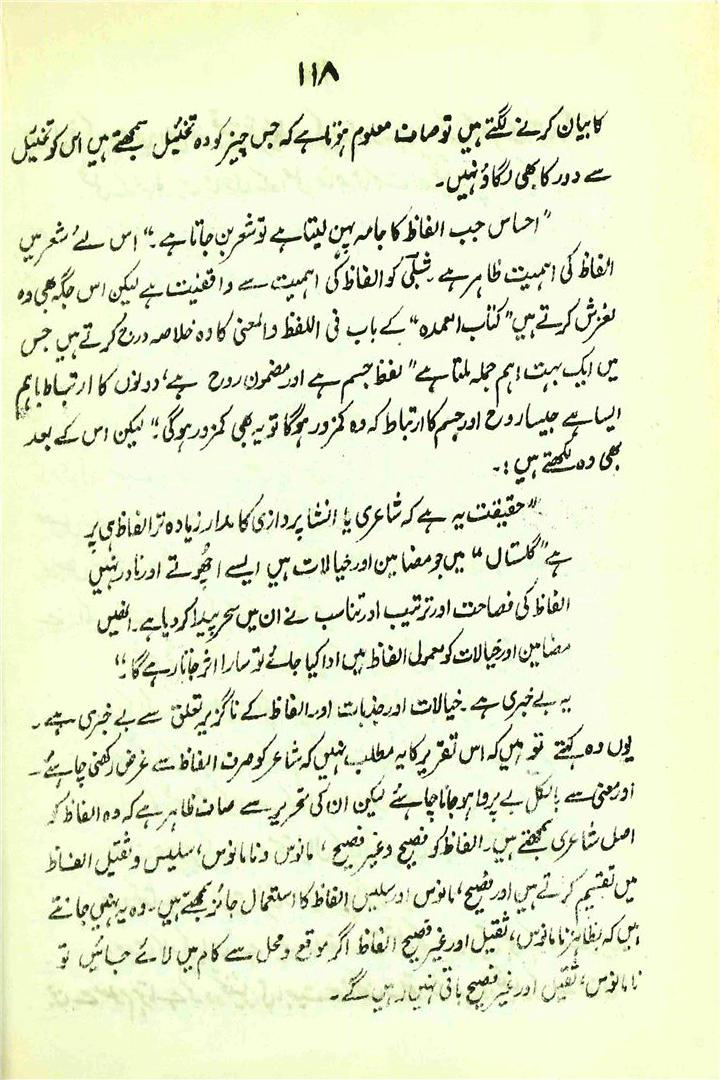 ۱۱۸
کا بیان کرنے لگتے ہیں تو صاف معلوم ہوتا ہے کہ جس چیز کو وہ تخئیل سمجھتے ہیں اس کو تخئیل
سے دور کا بھی لگاؤ نہیں۔
"احساس جب الفاظ کا جامہ پہن لیتا ہے تو شعر بن جاتا ہے۔" اس لئے شعر میں
الفاظ کی اہمیت ظاہر ہے۔ شبلیؔ کو الفاظ کی اہمیت سے واقفیت ہے لیکن اس جگہ بھی وہ
لغزش کرتے ہیں "کتاب العمدہ" کے باب فی اللفظ والمعنی کا وہ خلاصہ درج کرتے ہیں جس
میں ایک بہت اہم جملہ ملتا ہے "لفظ جسم ہے اور مضمون روح ہے، دونوں کا ارتباط باہم
ایسا ہے جیسا روح اور جسم کا ارتباط کہ وہ کمزور ہوگا تو یہ بھی کمزور ہوگی۔" لیکن اس کے بعد
بھی وہ لکھتے ہیں :۔
"حقیقت یہ ہے کہ شاعری یا انشا پردازی کا مدار زیادہ تر الفاظ ہی پر
ہے "گلستاں" میں جو مضامین اور خیالات ہیں ایسے اچھُوتے اور نادر نہیں
الفاظ کی فصاحت اور ترتیب اور تناسب نے ان میں سحر پیدا کر دیا ہے۔ انھیں
مضامین اور خیالات کو معمولی الفاظ میں ادا کیا جائے تو سارا اثر جاتا رہے گا۔"
یہ بے خبری ہے۔ خیالات اور جذبات اور الفاظ کے ناگزیر تعلق سے بے خبری ہے۔
یوں وہ کہتے تو ہیں کہ اس تقریر کا یہ مطلب نہیں کہ شاعر کو صرف الفاظ سے غرض رکھنی چاہئے۔
اور معنی سے بالکل بے پروا ہو جانا چاہئے لیکن ان کی تحریر سے صاف ظاہر ہے کہ وہ الفاظ کو
اصل شاعری سمجھتے ہیں۔ الفاظ کو فصیح و غیر فصیح، مانوس و نامانوس، سلیس و ثقیل الفاظ
میں تقسیم کرتے ہیں اور فصیح، مانوس اور سلیس الفاظ کا استعمال جائز سمجھتے ہیں۔ وہ یہ نہیں جانتے
ہیں کہ بظاہر نامانوس، ثقیل اور غیر فصیح الفاظ اگر موقع و محل سے کام میں لائے جائیں تو
نامانوس، ثقیل اور غیر فصیح باقی نہیں رہیں گے۔